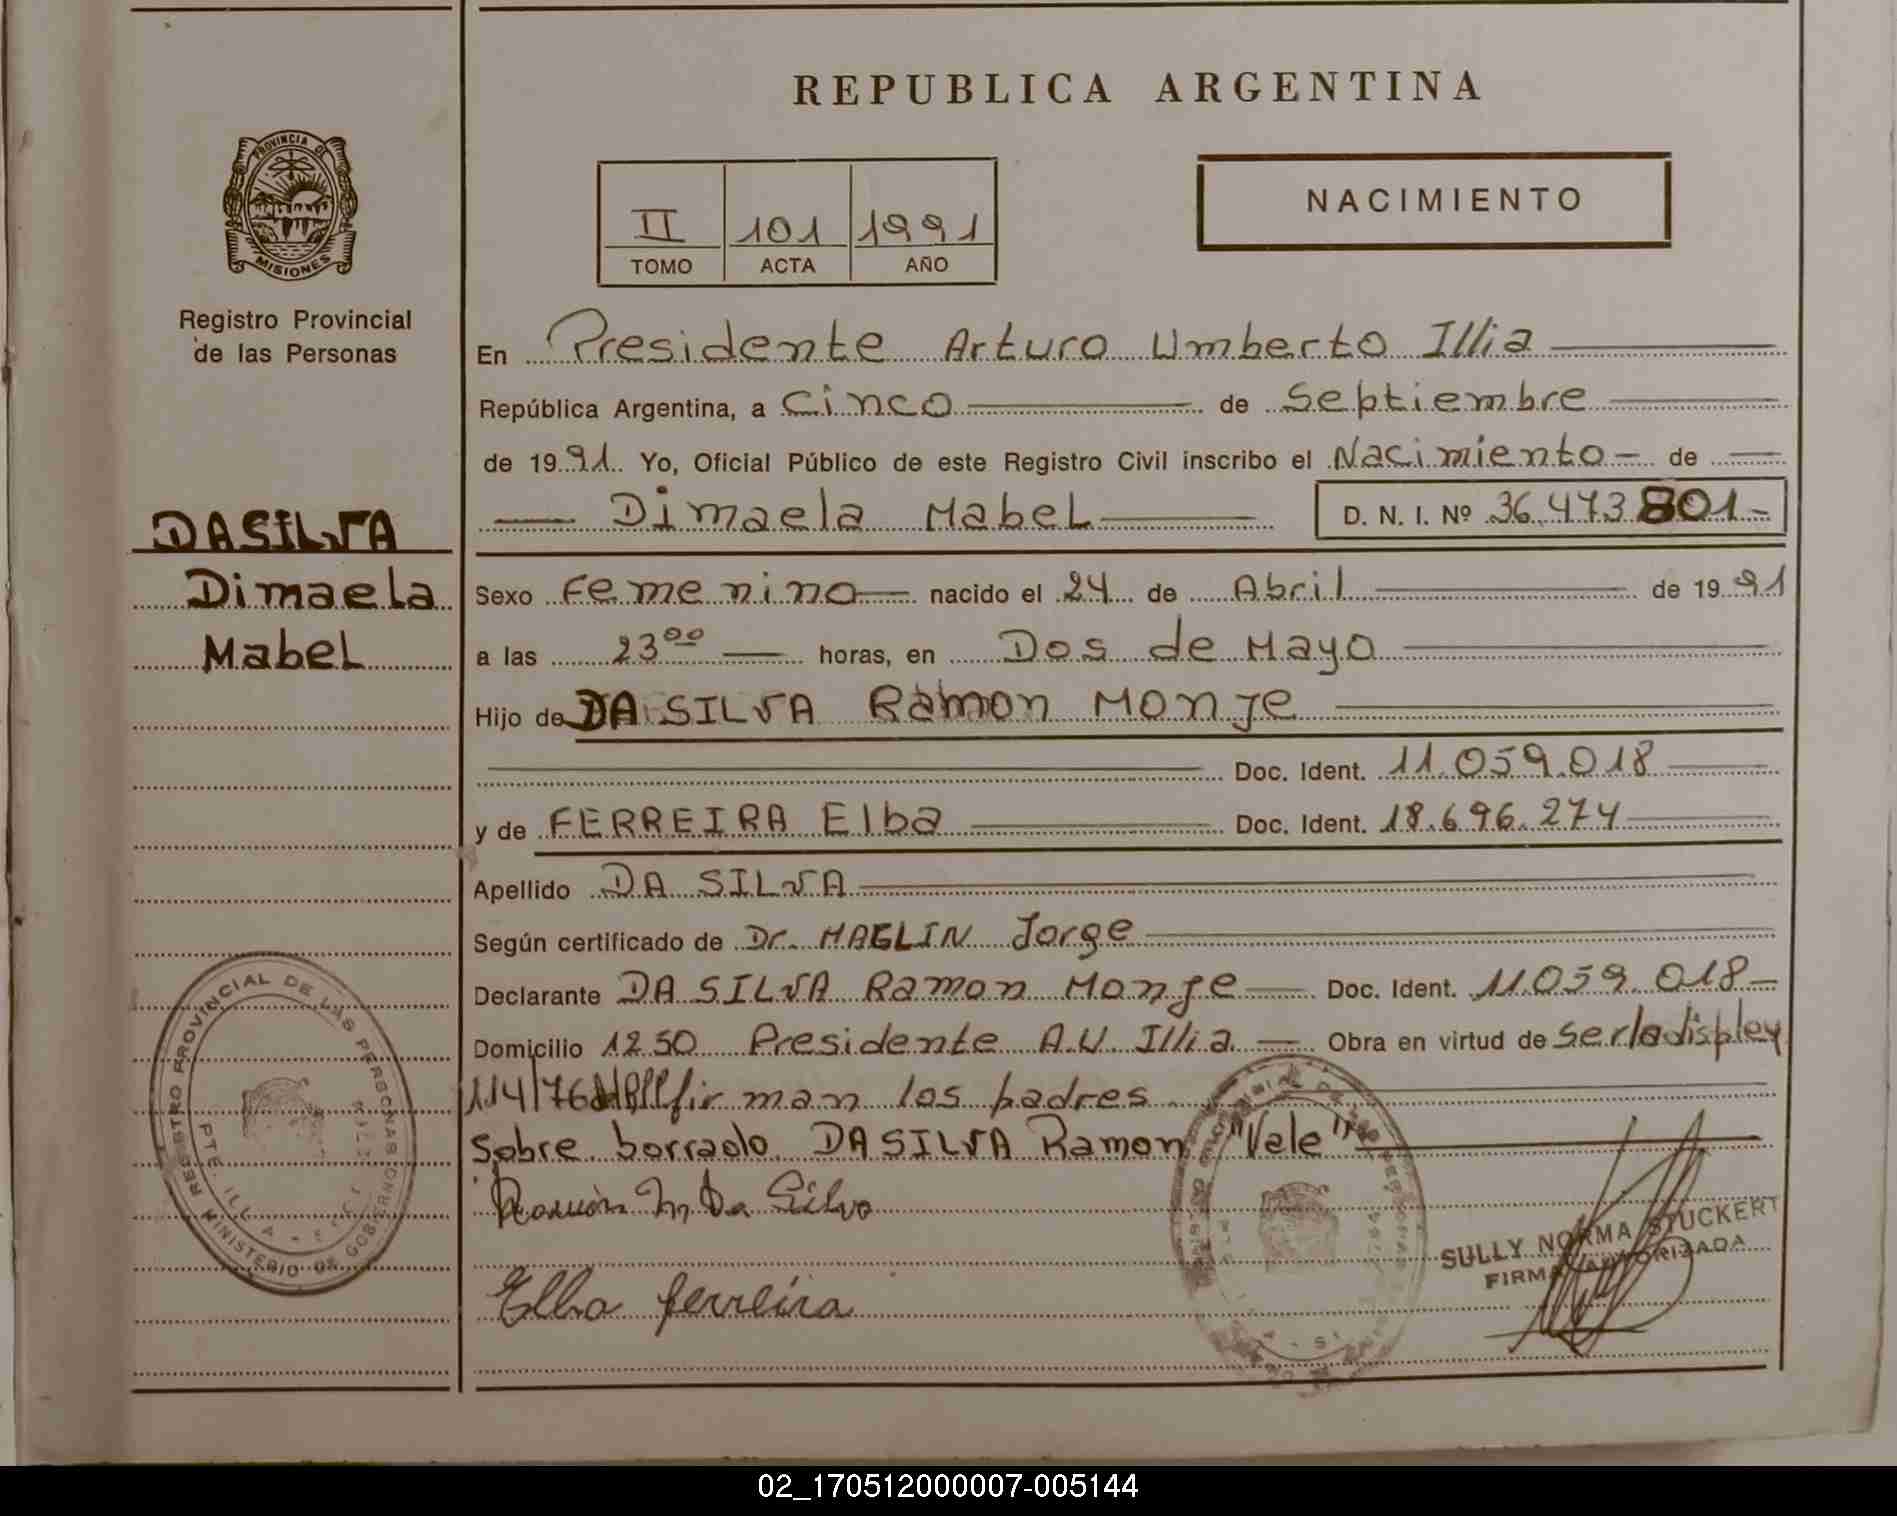 REPUBLICA ARGENTINA
PROVINCIA DE
MISIONES
Registro Provincial
de las Personas
NACIMIENTO
II 101 1991
TOMO ACTA AÑO
En Presidente Arturo Umberto Illia
República Argentina, a Cinco de Septiembre
de 1991 Yo, Oficial Público de este Registro Civil inscribo el Nacimiento de
Dimaela Mabel D. N. I. Nº 36.473801-
DASILVA
Dimaela
Mabel
Sexo Femenino nacido el 24 de Abril de 1991
a las 23⁰⁰ horas, en Dos de Mayo
Hijo de DA SILVA Ramon Monje
Doc. Ident. 11.059.018
y de FERREIRA Elba Doc. Ident. 18.696.274
Apellido DA SILVA
Según certificado de Dr. MAGLIN Jorge
Declarante DA SILVA Ramon Monje Doc. Ident. 11.059.018-
Domicilio 1250 Presidente A.U. Illia Obra en virtud de
114/76 firman los padres
Sobre borrado DASILVA Ramon "Vale"
Ramón M Da Silva
Elba ferreira
REGISTRO PROVINCIAL DE LAS PERSONAS
MINISTERIO DE GOBIERNO
PTE. ILLIA
SULLY NORMA STUCKERT
FIRMA AUTORIZADA
02_170512000007-005144